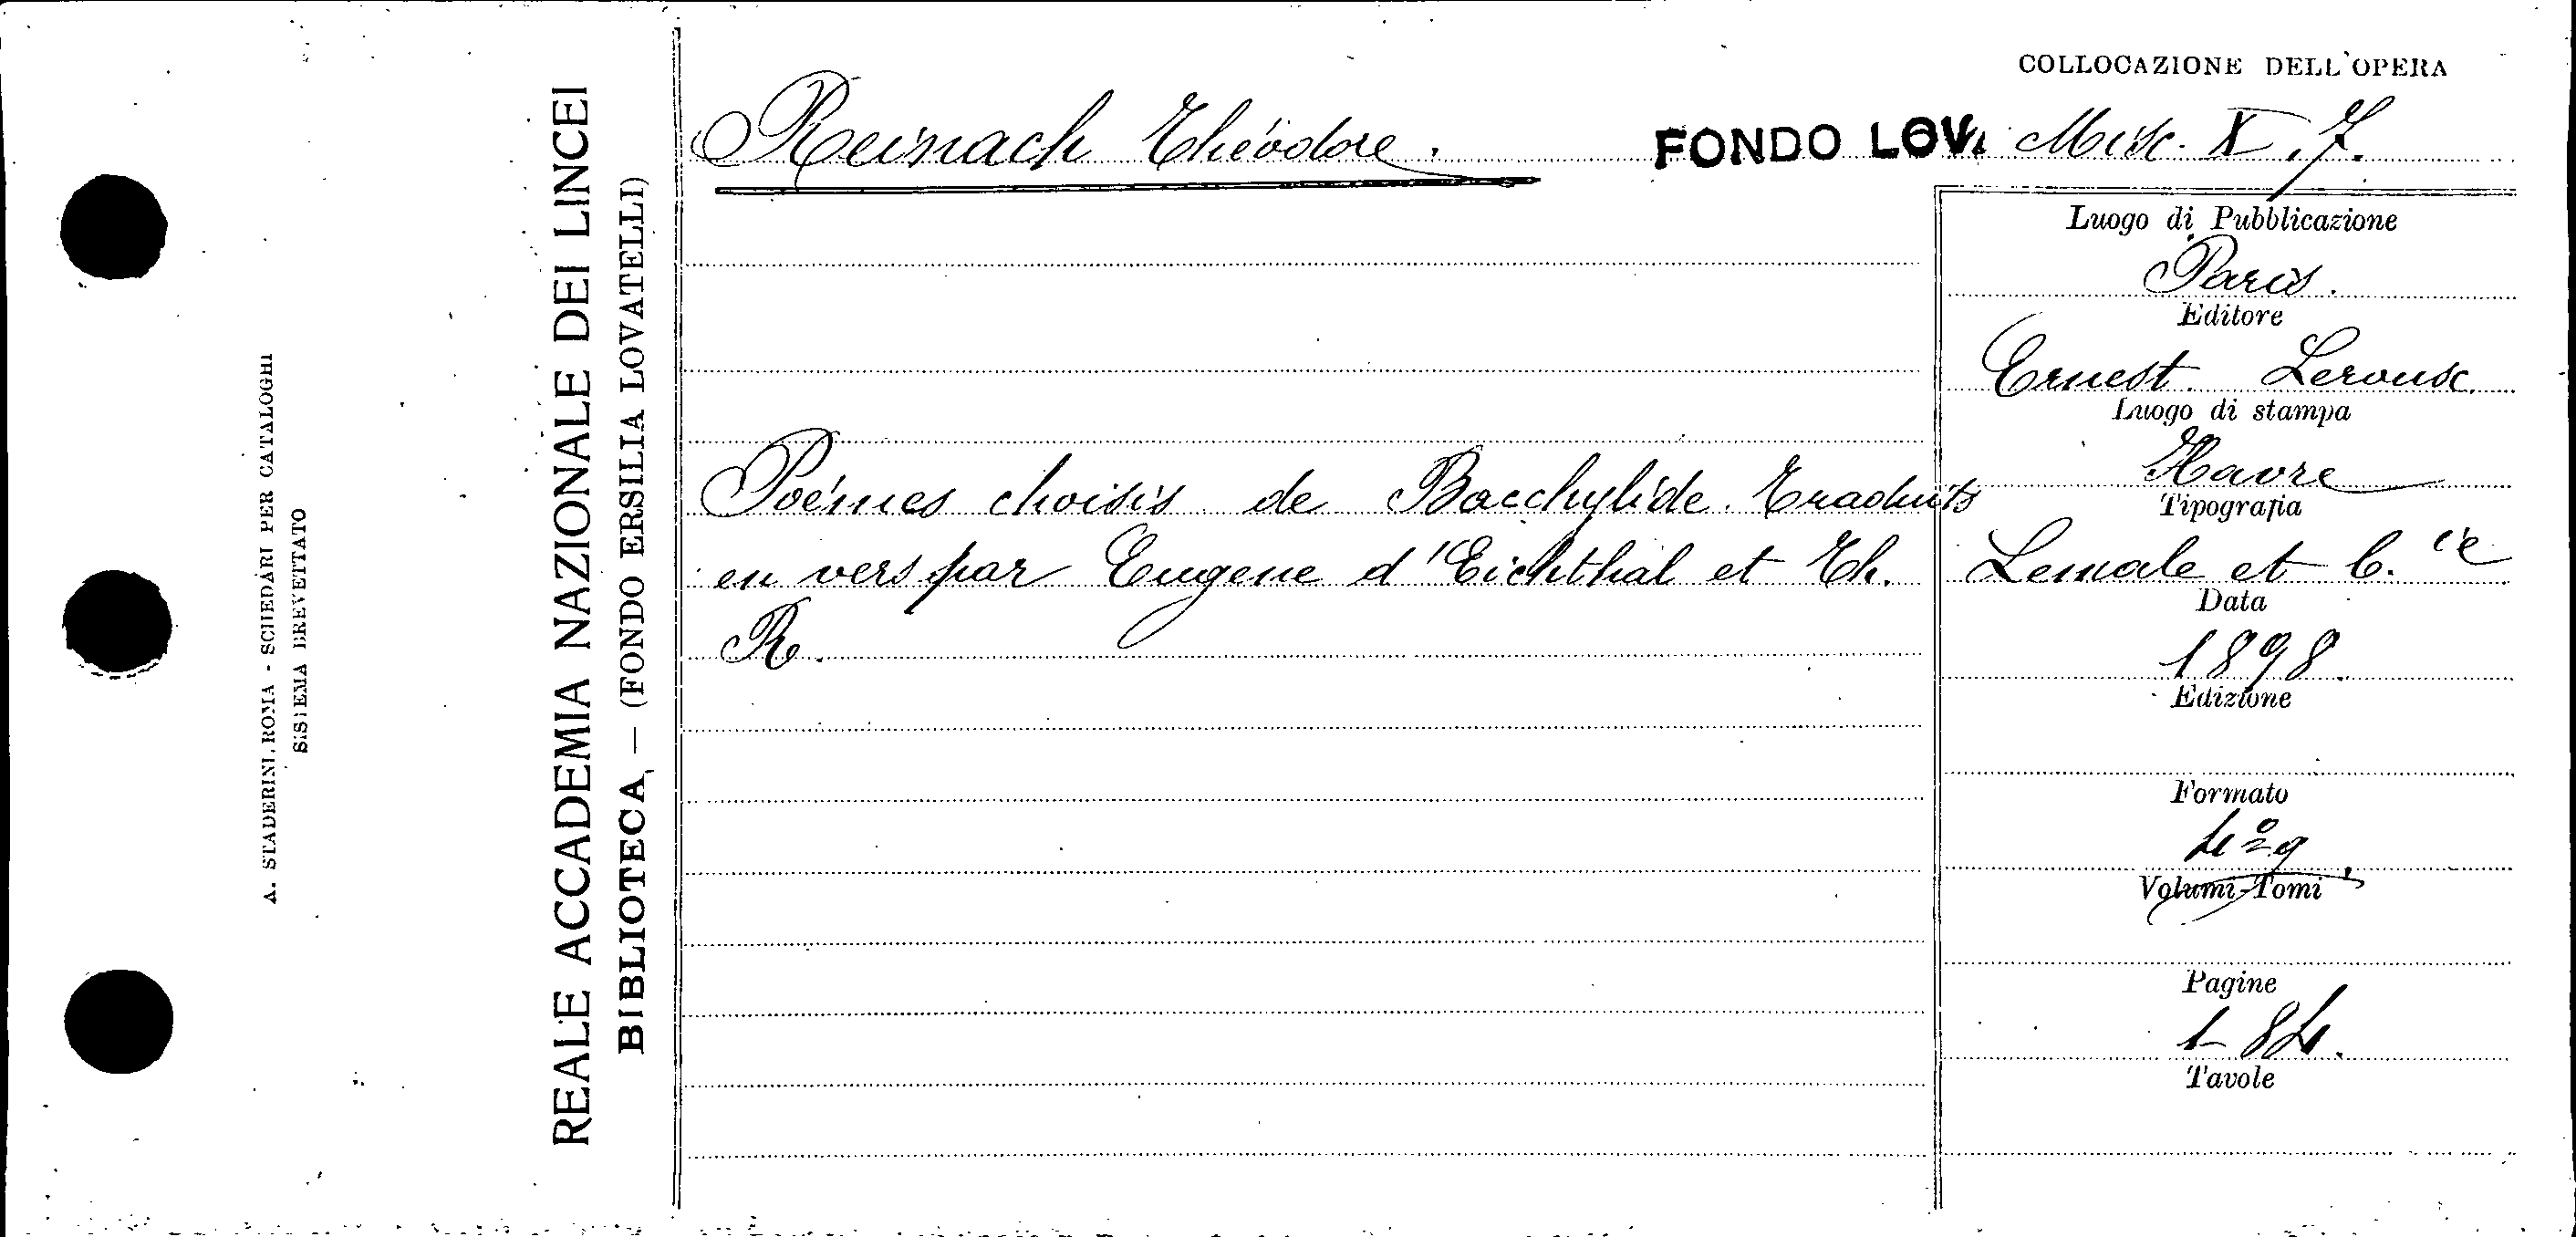 A. STADERINI, ROMA - SCHEDARI PER CATALOGHI
SISTEMA BREVETTATO
REALE ACCADEMIA NAZIONALE DEI LINCEI
BIBLIOTECA — (FONDO ERSILIA LOVATELLI)
COLLOCAZIONE DELL'OPERA
Reinach Théodore.
FONDO LOV. Misc. X. 7.
Poémes choisis de Bacchylide. Traduits
en vers par Eugene d'Eichthal et Th.
R.
Luogo di Pubblicazione
Paris.
Editore
Ernest Leroux.
Luogo di stampa
Havre
Tipografia
Lemale et C.ie
Data
1898.
Edizione
Formato
4º
Volumi-Tomi
Pagine
1-84.
Tavole